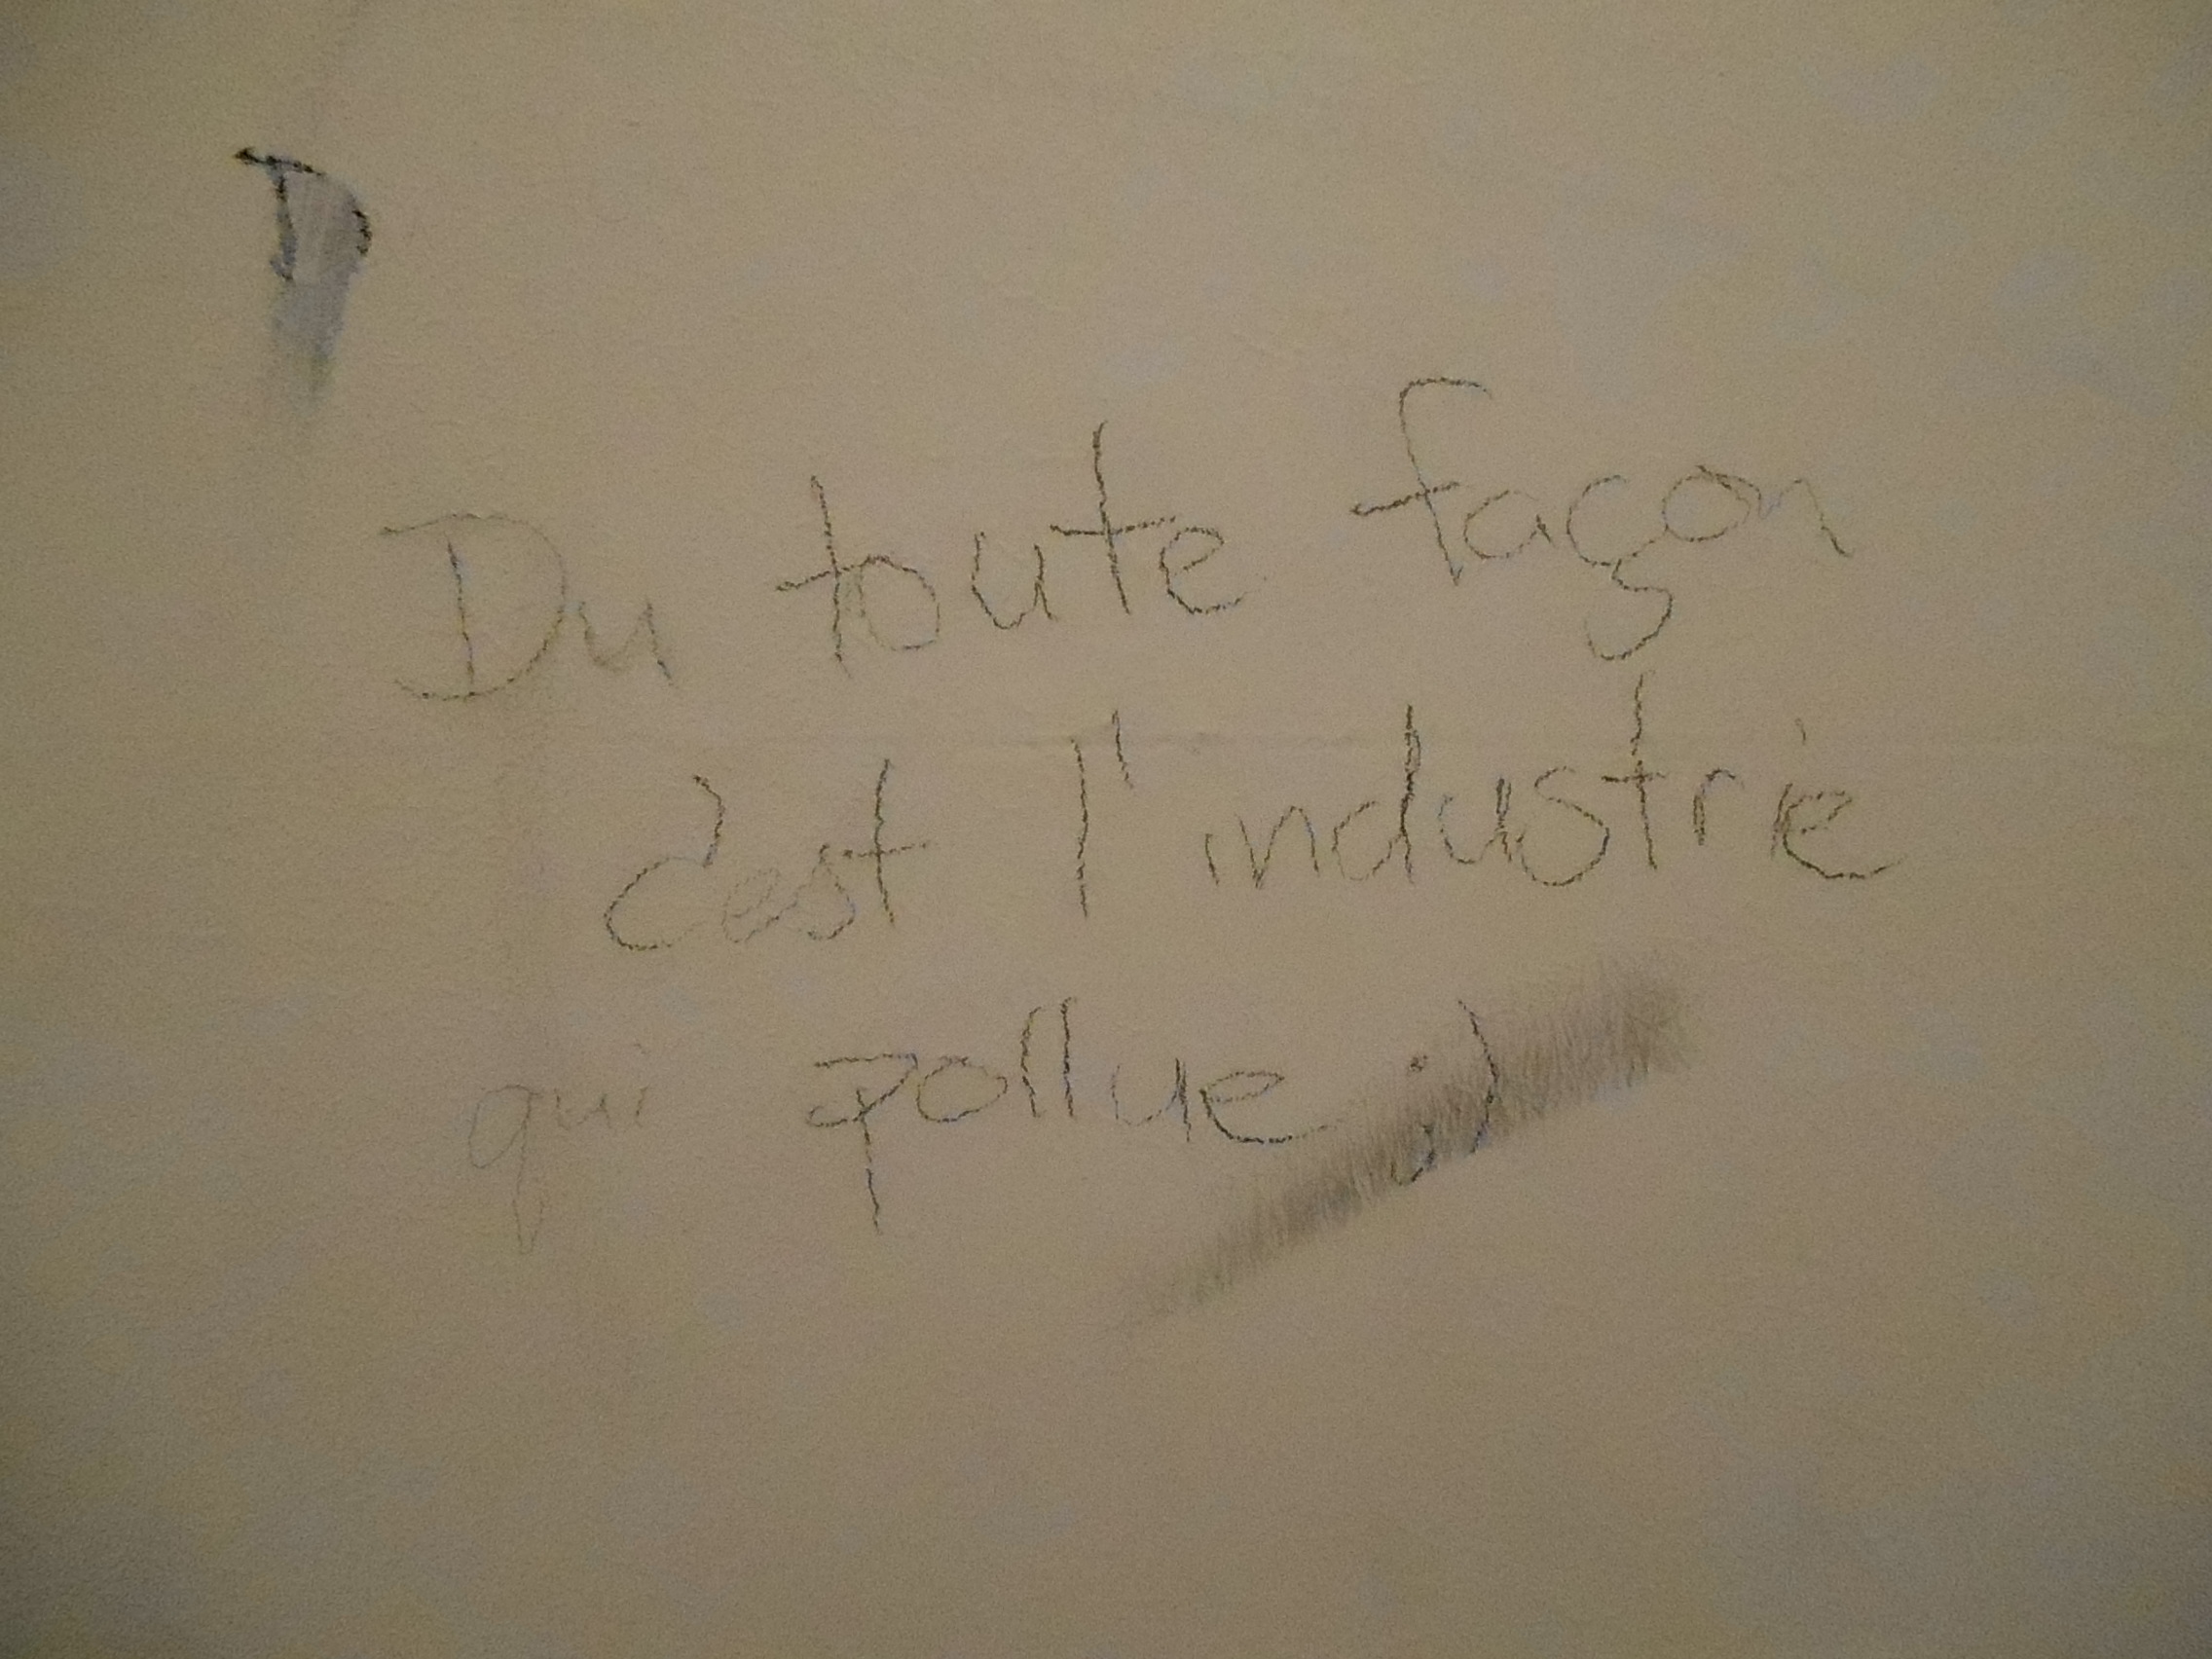 D
Du toute façon
c'est l'industrie
qui pollue ;)